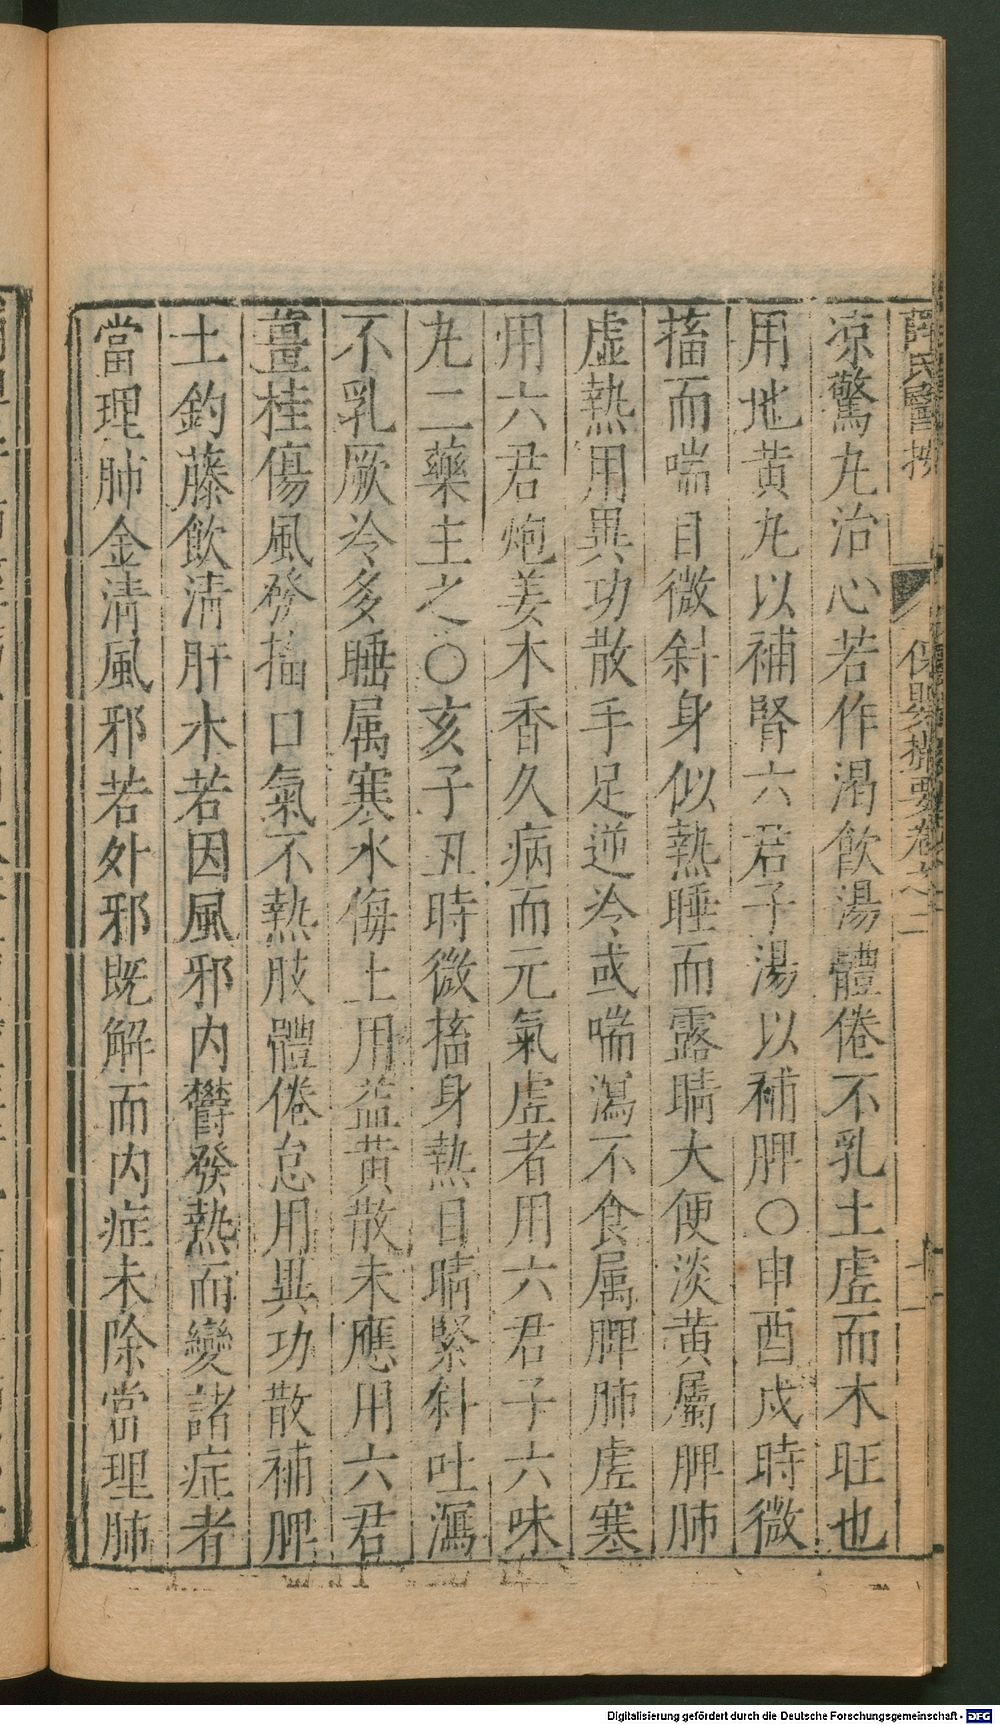 薛氏醫按 保嬰撮要卷之二 十一
涼驚丸治心若作渴飲湯體倦不乳土虛而木旺也
用地黃丸以補腎六君子湯以補脾○申酉戌時微
搐而喘目微斜身似熱睡而露睛大便淡黃屬脾肺
虛熱用異功散手足逆冷或喘瀉不食属脾肺虛寒
用六君炮姜木香久病而元氣虛者用六君子六味
丸二藥主之○亥子丑時微搐身熱目睛緊斜吐瀉
不乳厥冷多睡属寒水侮土用益黃散未應用六君
薑桂傷風發搐口氣不熱肢體倦怠用異功散補脾
土釣藤飲清肝木若因風邪内欝發熱而變諸症者
當理肺金清風邪若外邪既解而内症未除當理肺
Digitalisierung gefördert durch die Deutsche Forschungsgemeinschaft - DFG